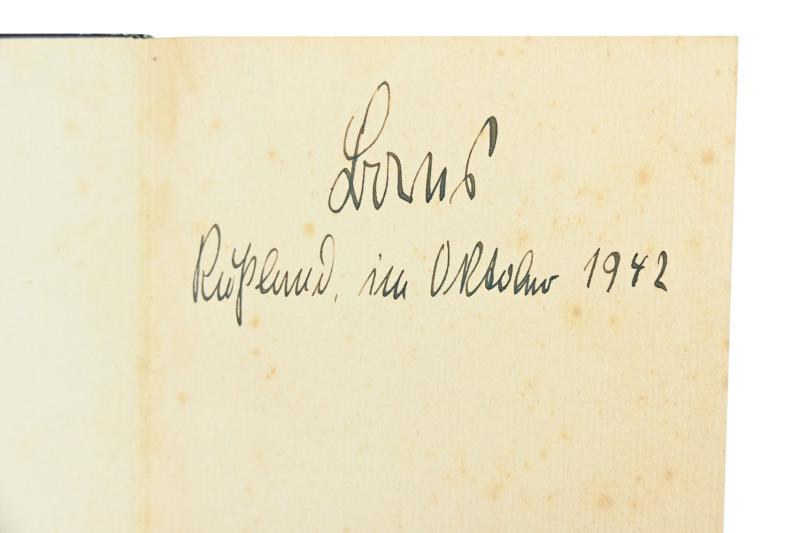 Rußland, im Oktober 1942